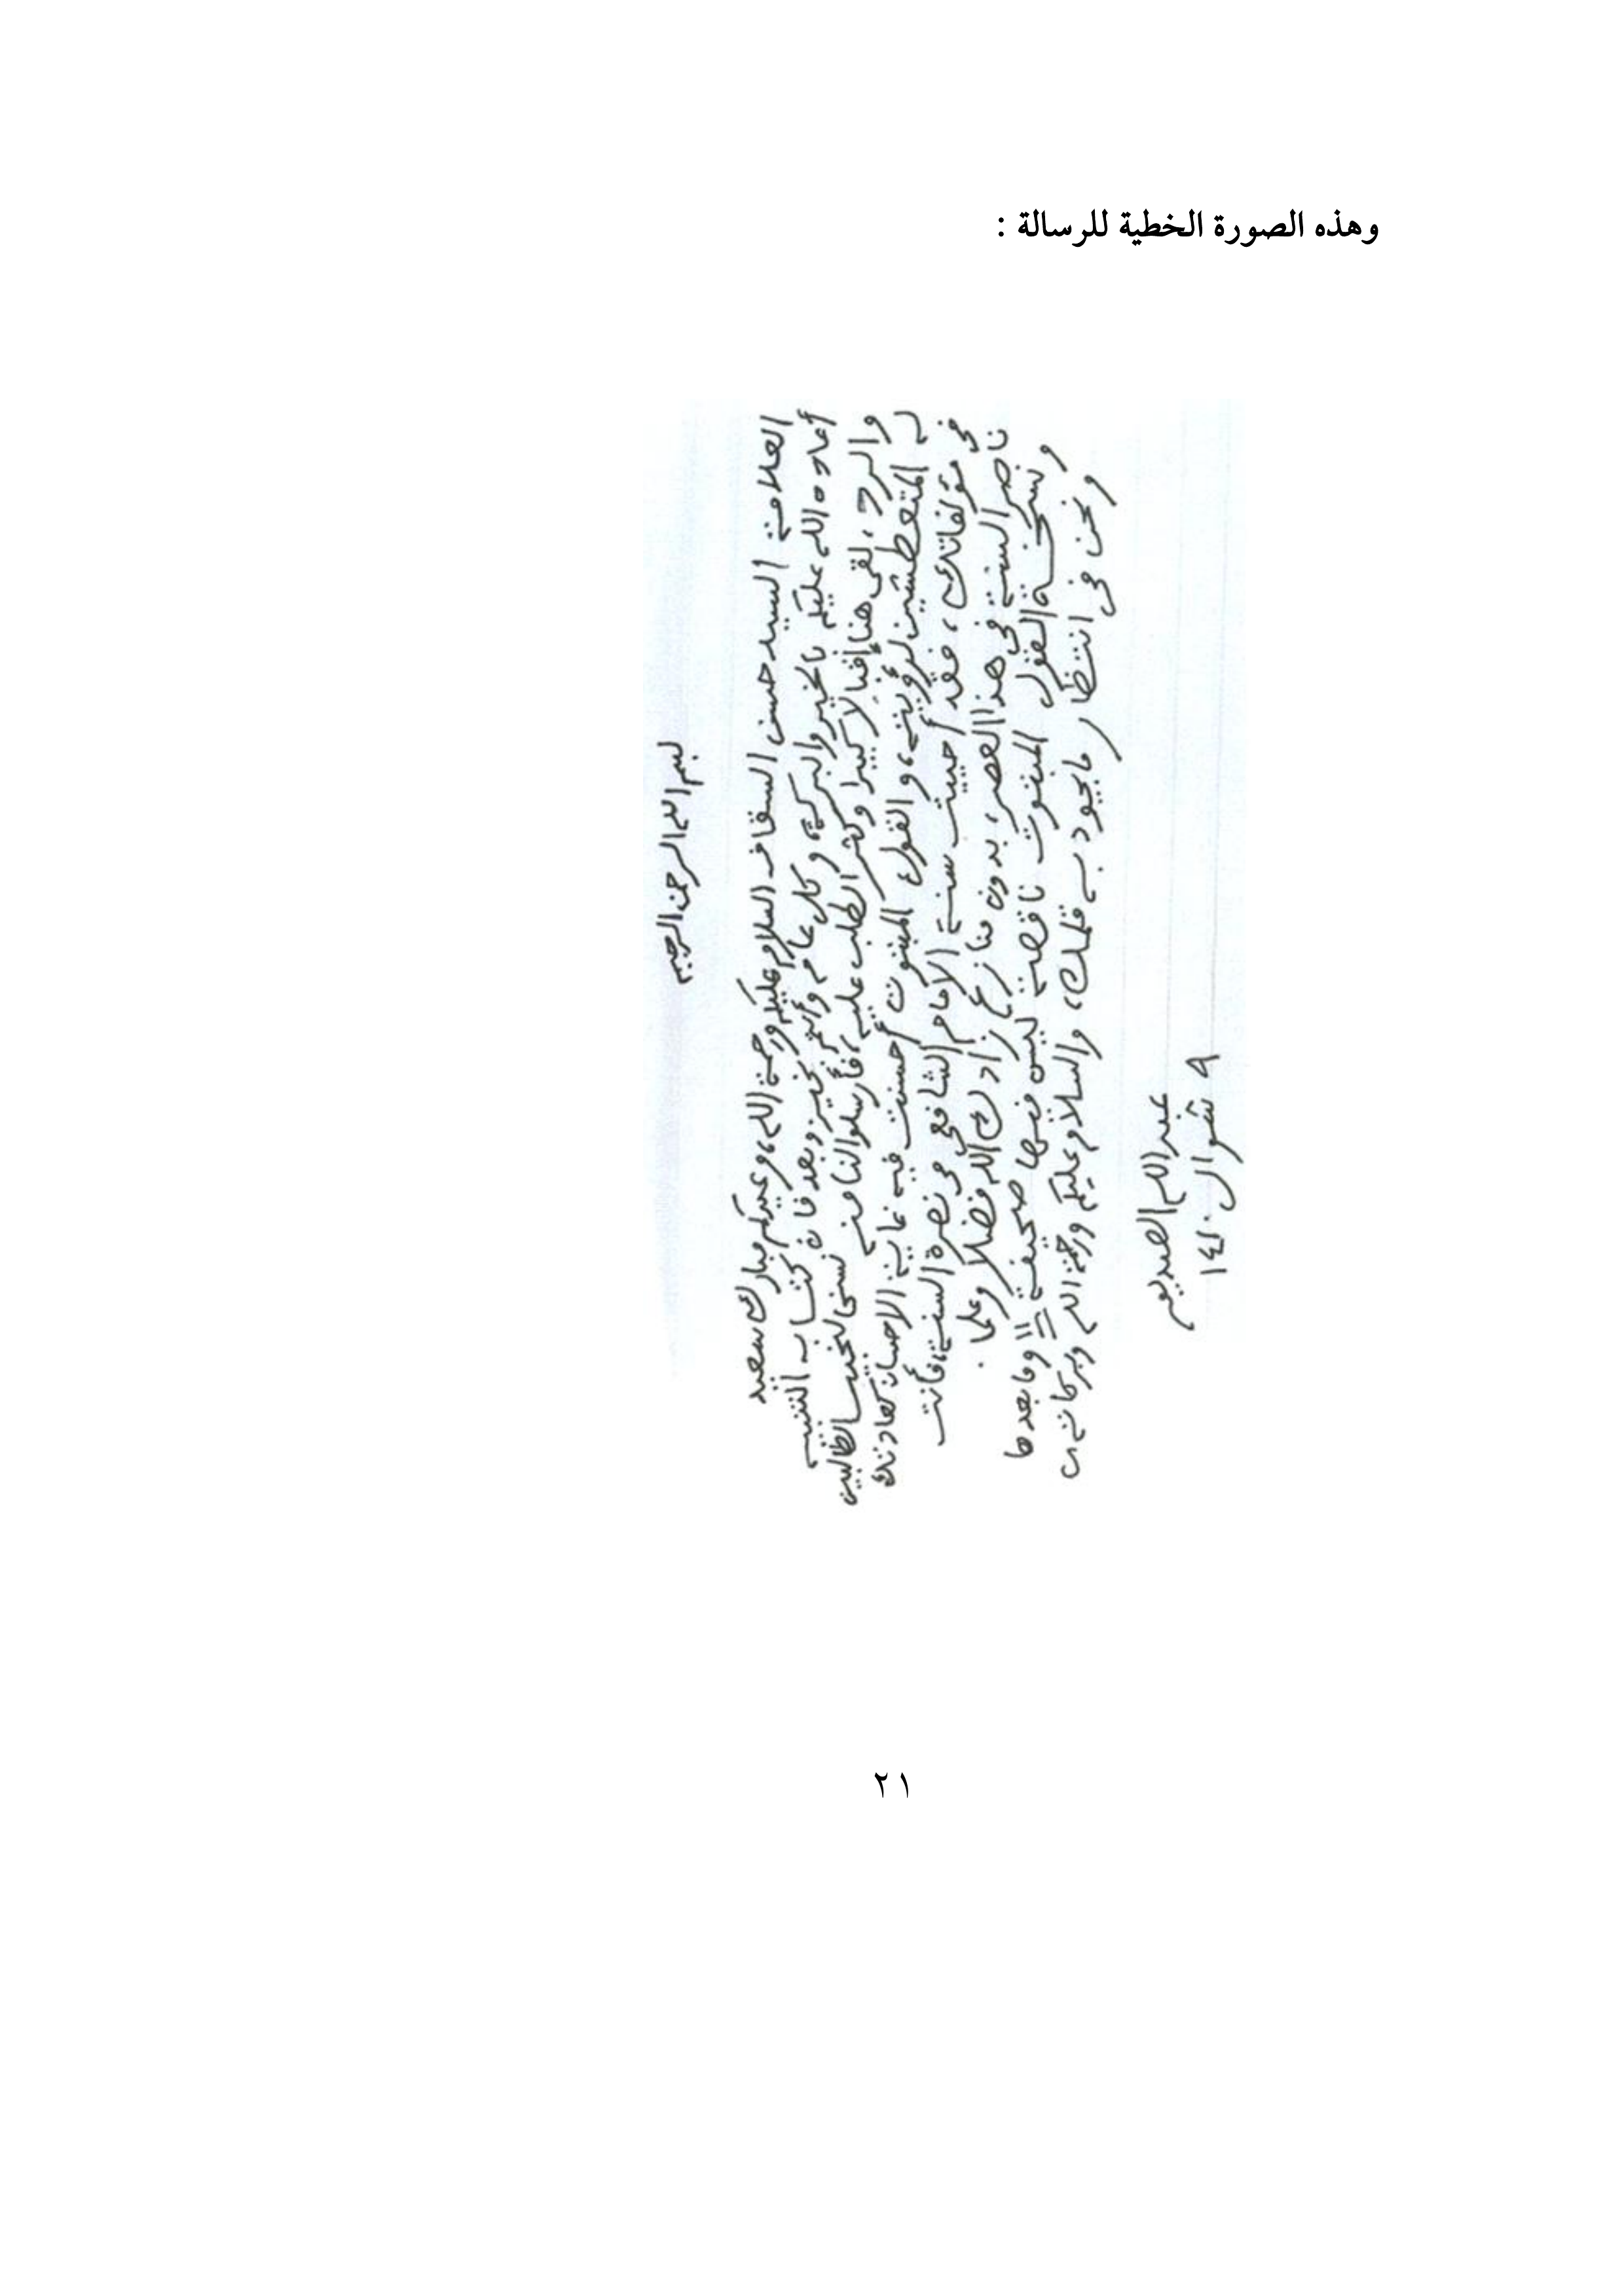 وهذه الصورة الخطية للرسالة :
بسم الله الرحمن الرحيم
العلامة السيد حسن السقاف السلام عليكم ورحمة الله، وعيدكم مبارك سعيد
أعاده الله عليكم بالخير والبركة، وكل عام وأنتم بخير وبعد فان كتاب التنبيه
والرد، لقى هنا إقبالا كبيرا وكثر الطلب عليه، فأرسلوا لنا منه نسخا لنخب الطالبين
له المتعطشين لرؤيته، والقول المبثوت أحسنت فيه غاية الاحسان كعادتك
في مؤلفاتك، فقد أحييت سنة الامام الشافعي في نصرة السنة، فأنت
ناصر السنة في هذا العصر، بدون منازع زادك الله فضلا وعلما .
ونسخة القول المبثوت ناقصة ليس فيها صحيفة ١١ وما بعدها
ونحن في انتظار ما يجود به قلمك، والسلام عليكم ورحمة الله وبركاته
عبد الله الصديق
٩ شوال ١٤١٠
٢١